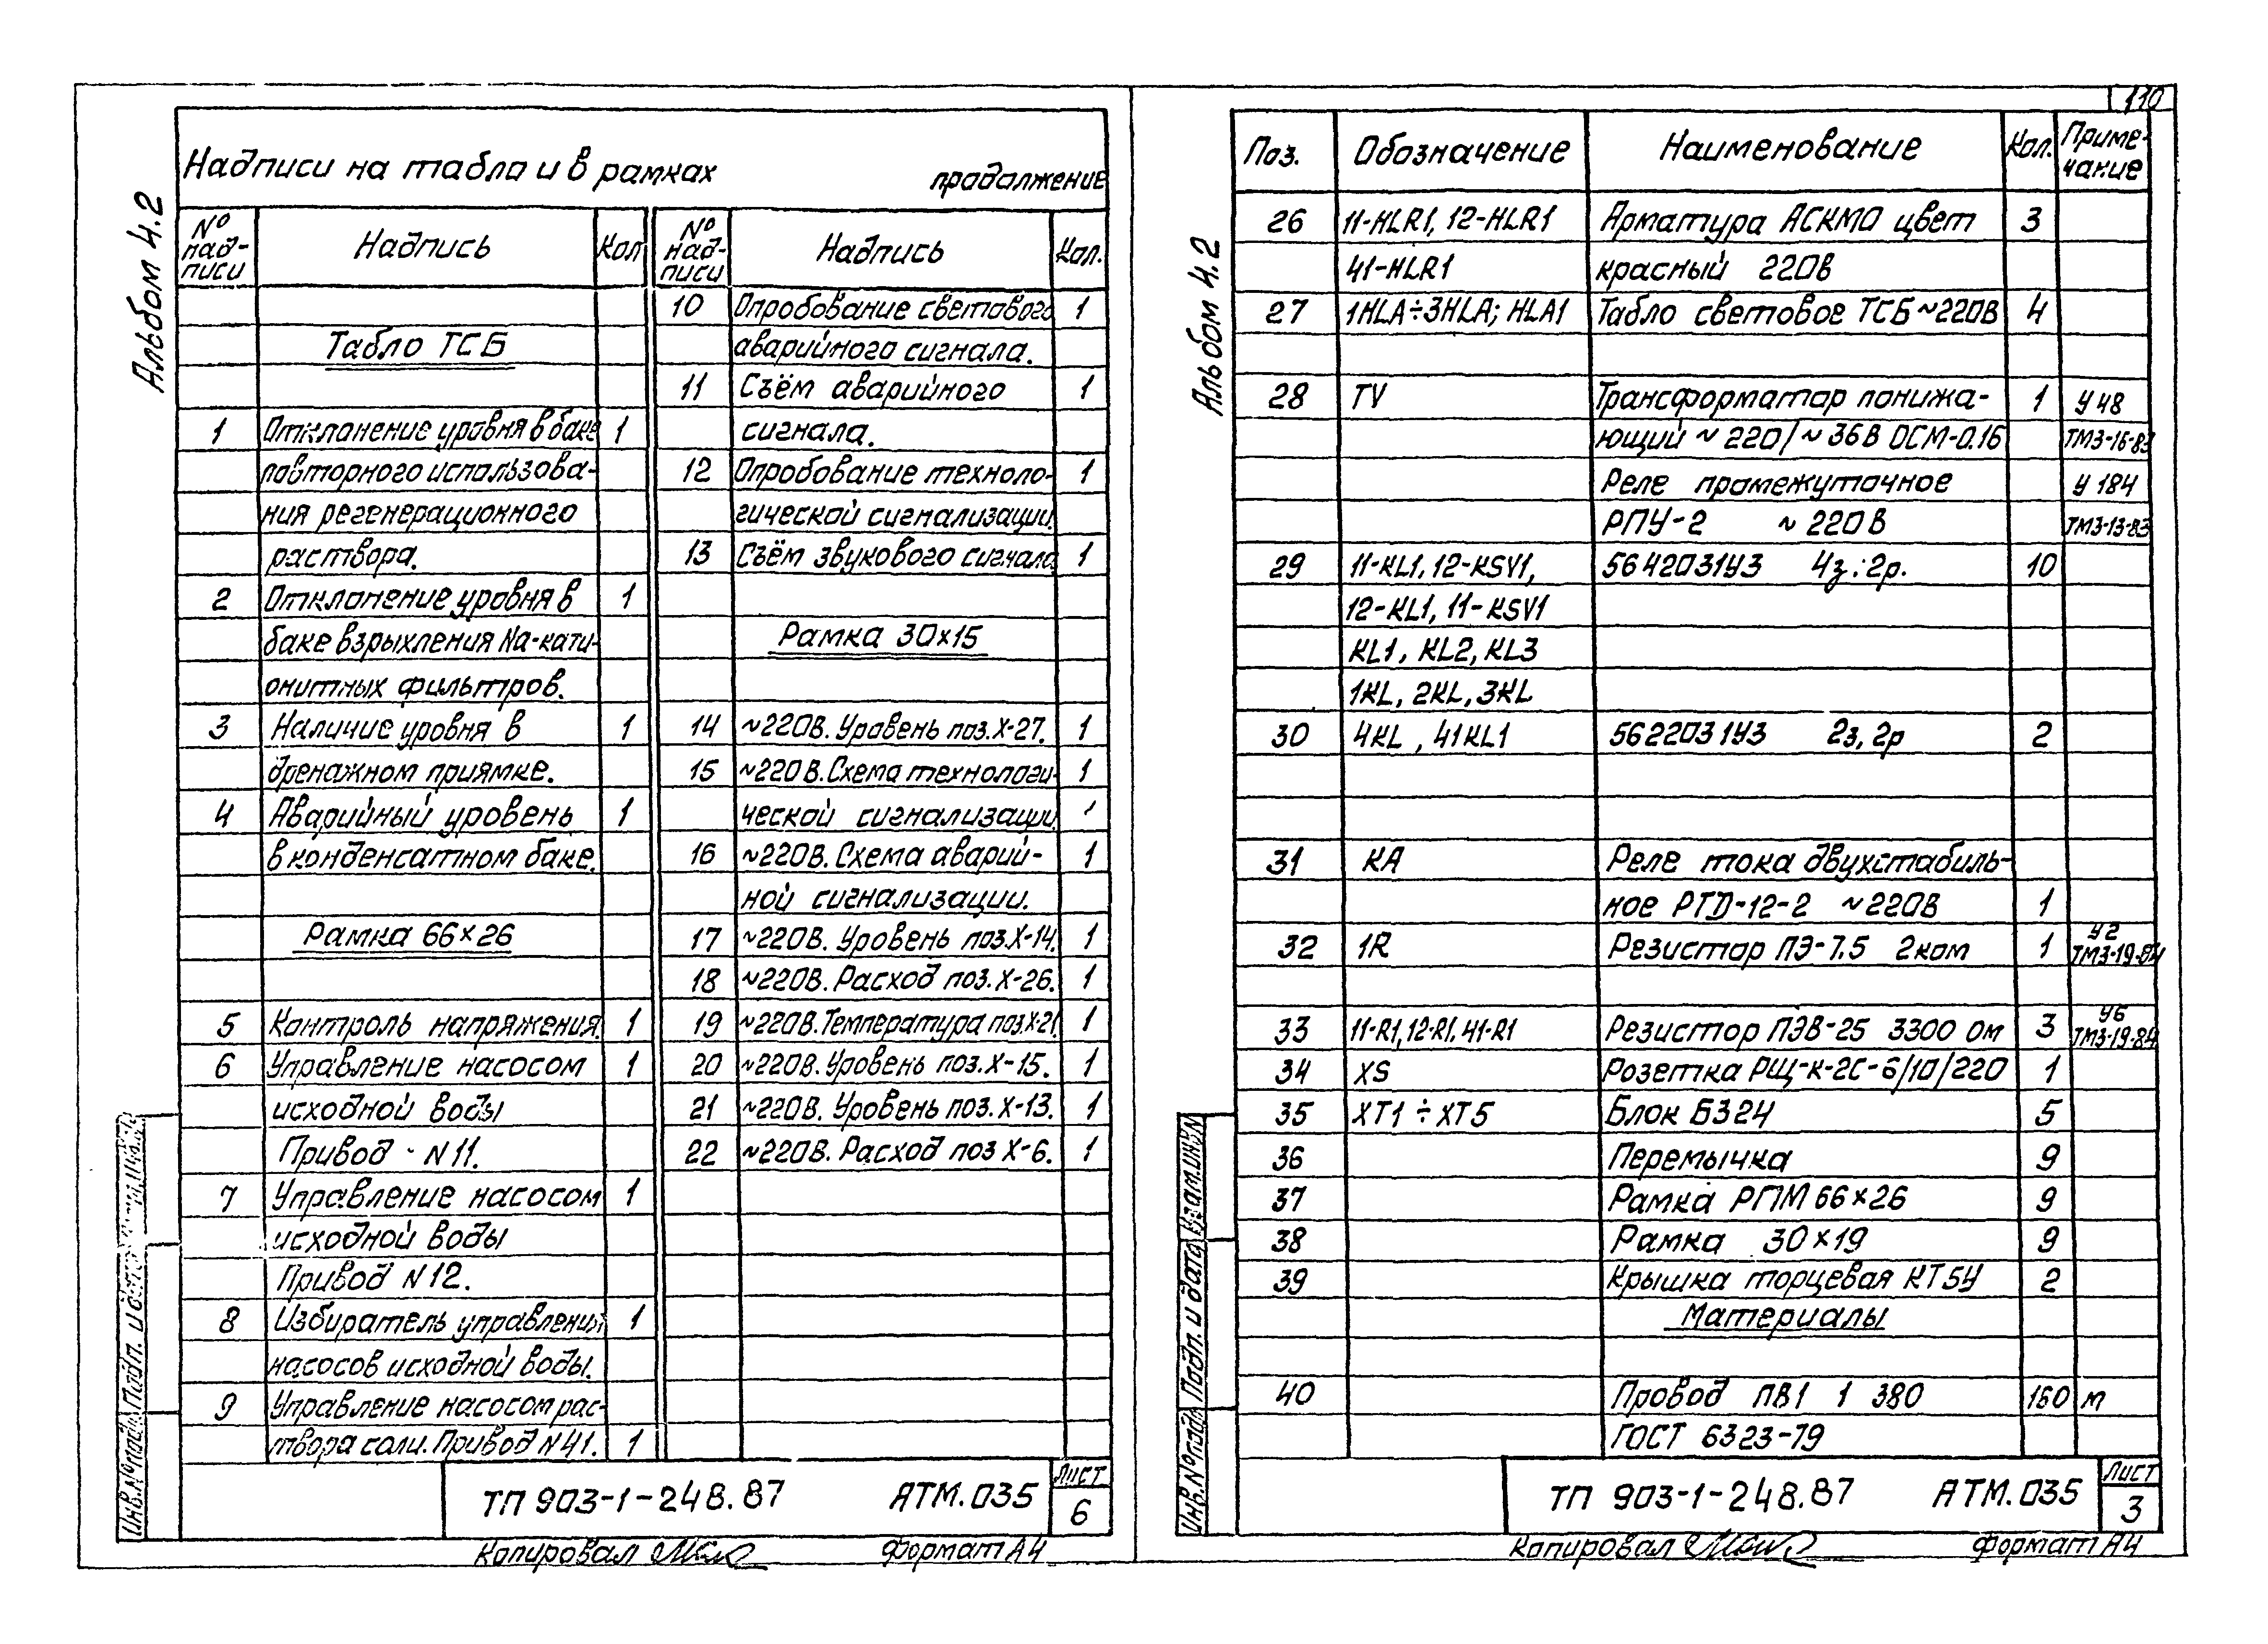 110
Альбом 4.2
Надписи на табло и в рамках продолжение
№ надписи Надпись Кол № надписи Надпись Кол.
Табло ТСБ
1 Отклонение уровня в баке 1
повторного использова-
ния регенерационного
раствора.
2 Отклонение уровня в 1
баке взрыхления Na-кати-
онитных фильтров.
3 Наличие уровня в 1
дренажном приямке.
4 Аварийный уровень 1
в конденсатном баке.
Рамка 66×26
5 Контроль напряжения 1
6 Управление насосом 1
исходной воды
Привод - N11.
7 Управление насосом 1
исходной воды
Привод N12.
8 Избиратель управления 1
насосов исходной воды.
9 Управление насосом рас-
твора соли. Привод N41. 1
10 Опробование светового 1
аварийного сигнала.
11 Съём аварийного 1
сигнала.
12 Опробование техноло- 1
гической сигнализации.
13 Съём звукового сигнала 1
Рамка 30×15
14 ~220В. Уровень поз. Х-27. 1
15 ~220В. Схема технологи- 1
ческой сигнализации
16 ~220В. Схема аварий- 1
ной сигнализации.
17 ~220В. Уровень поз. Х-14. 1
18 ~220В. Расход поз. Х-26. 1
19 ~220В. Температура поз. Х-21. 1
20 ~220В. Уровень поз. Х-15. 1
21 ~220В. Уровень поз. Х-13. 1
22 ~220В. Расход поз Х-6. 1
Инв.№подл. Подп. и дата
ТП 903-1-248.87 АТМ.035 Лист 6
Копировал Формат А4
Альбом 4.2
Поз. Обозначение Наименование Кол. Приме-
чание
26 11-HLR1, 12-HLR1 Арматура АСКМО цвет 3
41-HLR1 красный 220В
27 1HLA÷3HLA; HLA1 Табло световое ТСБ ~220В 4
28 TV Трансформатор понижа- 1 У48
ющий ~220/~36В ОСМ-0.16 ТМ3-16-83
Реле промежуточное У 184
РПУ-2 ~220В ТМ3-13-83
29 11-KL1, 12-KSV1, 5642031У3 4з.:2р. 10
12-KL1, 11-KSV1
KL1, KL2, KL3
1KL, 2KL, 3KL
30 4KL, 41KL1 5622031У3 2з, 2р 2
31 КА Реле тока двухстабиль-
ное РТД-12-2 ~220В 1
32 1R Резистор ПЭ-7.5 2ком 1 У2
ТМ3-19-84
33 11-R1, 12-R1, 41-R1 Резистор ПЭВ-25 3300 ом 3 У6
ТМ3-19-84
34 XS Розетка РЩ-к-2С-6/10/220 1
35 XT1÷XT5 Блок Б324 5
36 Перемычка 9
37 Рамка РПМ 66×26 9
38 Рамка 30×19 9
39 Крышка торцевая КТ5У 2
Материалы
40 Провод ПВ1 1 380 160 м
ГОСТ 6323-79
Инв.№подл. Подп. и дата Взам.инв.N
ТП 903-1-248.87 АТМ.035 Лист 3
Копировал Формат А4